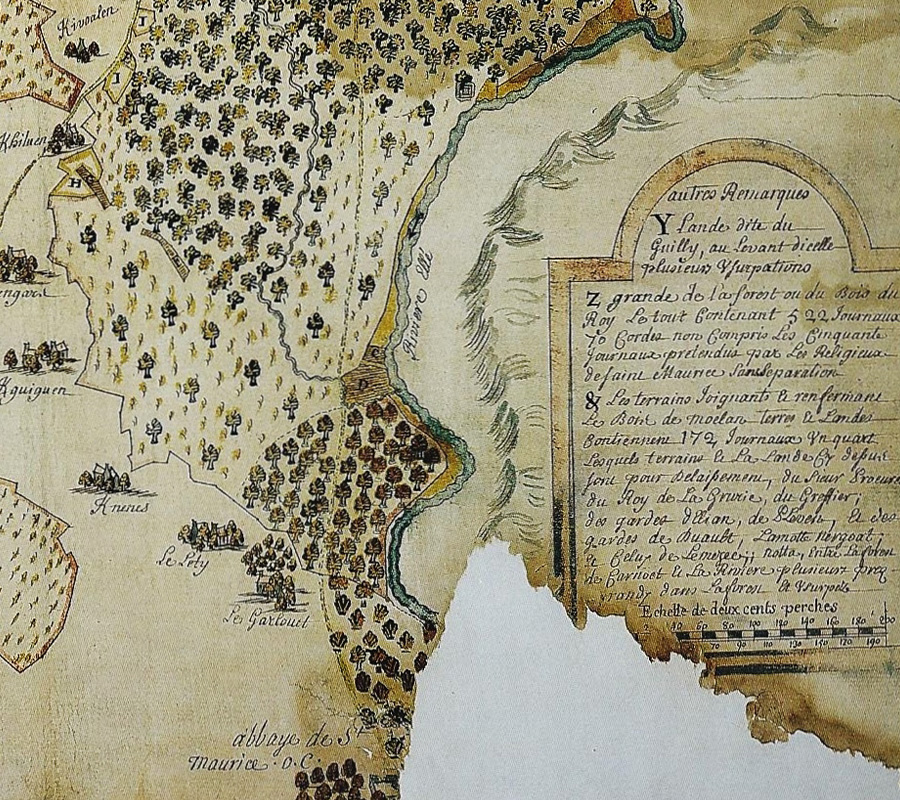 Kivoalen
I
I
H
Kquiguen
Knenes
Le Lety
Les Garlouet
abbaye de St
Maurice . O . C
Riviere d'Ellé
C
D
autres Remarques
Y Lande dite du
Guilly, au Levant dicelle
plusieurs Vsurpations
Z grande de la forest ou du Bois du
Roy Le tout Contenant 522 Journaux
70 Cordes non Compris Les Cinquante
Journaux pretendus par Les Religieux
de saint Maurice Sans separation
& Les terrains Joignants & renfermant
Le Bois de moelan terres & Landes
Contiennent 172 Journaux Vn quart
Lesquels terrains & La Lande Cy dessus
font pour Delaissement, du Sieur
du Roy de La Grurie, du Greffier;
des gardes de Et des
gardes de Duault, Lamotte
& Celuy de notta, Entre La forest
de Carnoet & La Riviere plusieurs prez
dans La forest Et Vsurpez
Echelle de deux cents perches
40 60 80 100 120 140 160 180 200
70 90 110 130 150 170 190